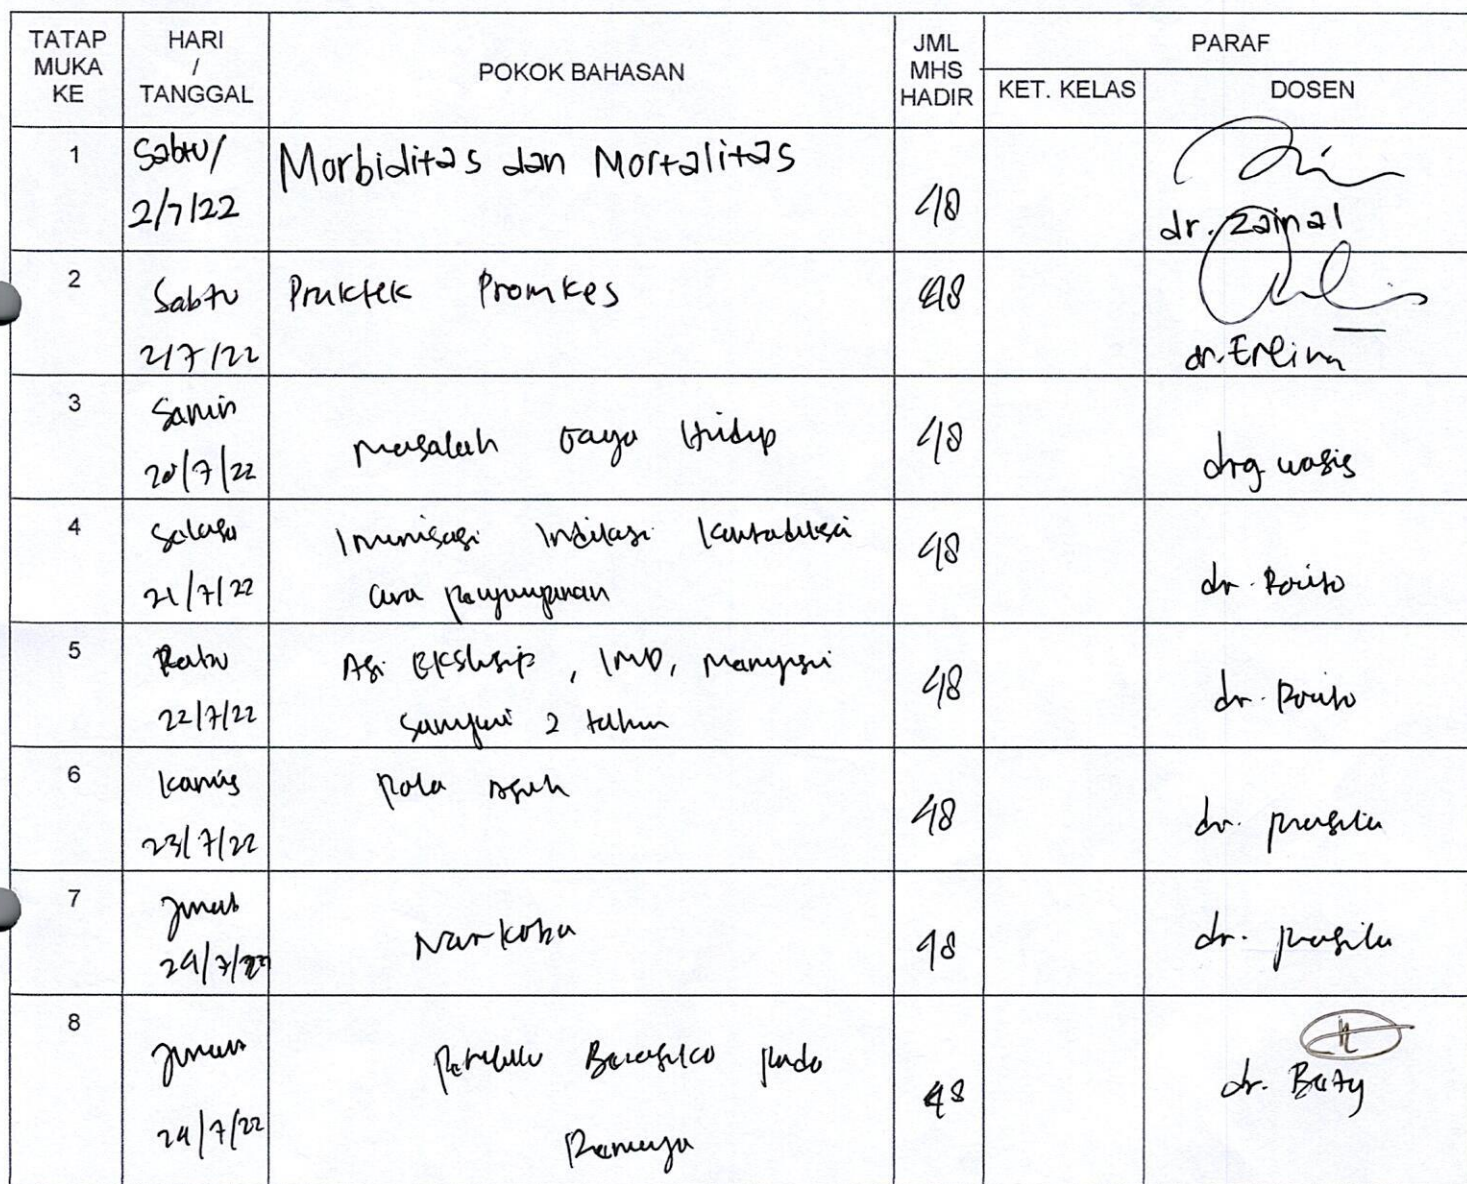 TATAP MUKA KE
HARI / TANGGAL
POKOK BAHASAN
JML MHS HADIR
PARAF
KET. KELAS
DOSEN
1
Sabtu/
2/7/22
Morbiditas dan Mortalitas
48
dr. Zainal
2
Sabtu
2/7/22
Praktek Promkes
48
dr. Erlina
3
Senin
20/7/22
Masalah Gaya Hidup
48
drg wasis
4
Selasa
21/7/22
Imunisasi Indikasi Kontradiksi
cara penyimpanan
48
dr.
5
Rabu
22/7/22
Asi Eksklusif, IMD, Menyusui
sampai 2 tahun
48
dr.
6
Kamis
23/7/22
Pola Asuh
48
dr.
7
Jumat
24/7/22
Narkoba
48
dr.
8
Jumat
24/7/22
Perilaku Beresiko pada
Remaja
48
dr. Betty